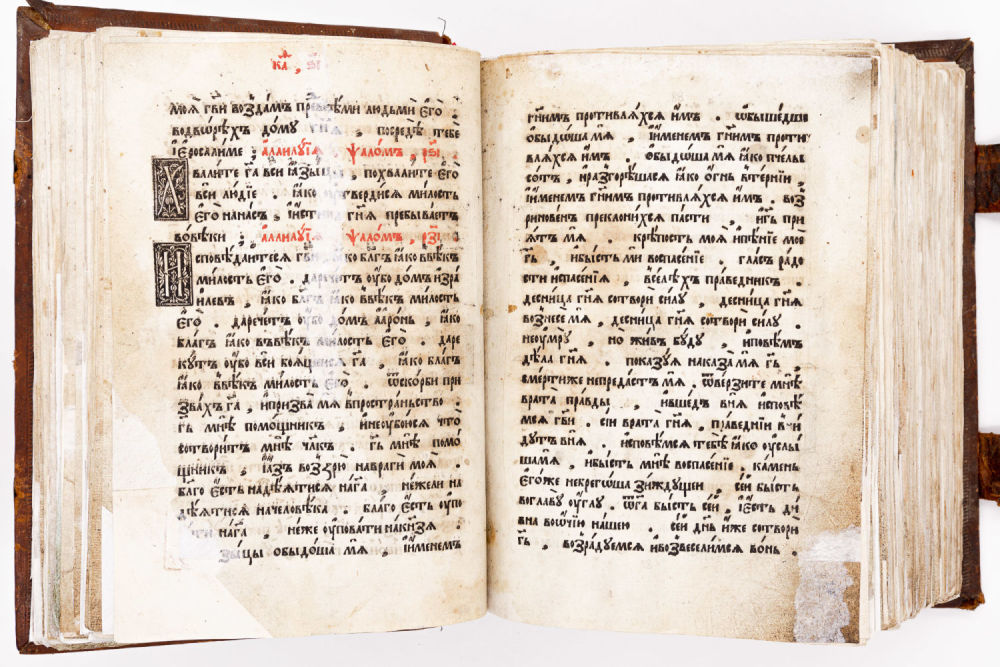 к҃а, ѕ҃і
моѧ̀ гв҃и воздамъ пре́дъ всѣ́ми людьмѝ є҆гѡ̀.
во дво́рѣхъ до́мꙋ гн҃ѧ, посредѣ̀ тебѐ
і҆ерⷭ҇али́ме; а҆ллилꙋ́їѧ ѱало́мъ, рѕ҃і.
Хвали́те гⷭ҇а всѝ ꙗ҆зы́цы, похвали́те є҆го̀
всѝ лю́дїе. ꙗ҆́ко ᲂу҆тверди́сѧ ми́лость
є҆гѡ̀ на на́съ, и҆ и҆́стина гн҃ѧ пребыва́етъ
во вѣ́ки; а҆ллилꙋ́їѧ ѱало́мъ, рз҃і.
И҆сповѣ́даитесѧ гв҃и, ꙗ҆́ко бл҃гъ ꙗ҆́ко в вѣ́къ
ми́лость є҆гѡ̀. да рече́тъ ᲂу҆́бо до́мъ і҆зра́
илевъ, ꙗ҆́ко бл҃гъ ꙗ҆́ко в вѣ́къ ми́лость
є҆гѡ̀. да рече́тъ ᲂу҆́бо до́мъ а҆аро́нь, ꙗ҆́ко
бла́гъ ꙗ҆́ко въ вѣ́къ ми́лость є҆гѡ̀. да ре
кꙋ́тъ ᲂу҆́бо всѝ боѧ́щеисѧ гⷭ҇а, ꙗ҆́ко бла́гъ
ꙗ҆́ко в вѣ́къ ми́лость є҆гѡ̀. ѿ ско́рби при
зва́хъ гⷭ҇а, и҆ призва́ мѧ в простра́ньство.
гь҃ мнѣ̀ помо́щникъ, и҆ не ᲂу҆бою́сѧ что̀
сотвори́тъ мнѣ̀ чл҃къ. гь҃ мнѣ̀ помо́
щникъ, и҆ а҆́зъ воззрю̀ на врагѝ моѧ̀.
бл҃го є҆́сть надѣ́ѧтисѧ на гⷭ҇а, не́жели на
дѣ́ѧтисѧ на человѣ́ка. бла́го є҆́сть ᲂу҆по
ва́ти на гⷭ҇а, не́же ᲂу҆пова́ти на кнѧ́зѧ.
ꙗ҆зы́цы ѡ҆быдо́ша мѧ̀, и҆ и҆́менемъ
гн҃имъ противлѧ́хсѧ и҆̀мъ. ѡ҆быше́дше
ѡ҆быдо́ша мѧ̀, и҆́менемъ гн҃имъ проти
влѧ́хсѧ и҆̀мъ. ѡ҆быдо́ша мѧ̀ ꙗ҆́ко пче́лы
со́тъ, и҆ разгорѣ́шасѧ ꙗ҆́ко ѻ҆́гнь в те́рнїи,
и҆́менемъ гн҃имъ противлѧ́хсѧ и҆̀мъ. воз
ри́новенъ преклони́хсѧ па́сти, и҆ гь҃ при
ѧ́тъ мѧ̀. крѣ́пость моѧ̀ и҆ пѣ́нїе моѐ
гь҃, и҆ бы́сть ми воспасе́нїе. гла́съ ра́до
сти и҆ спасе́нїѧ, в селѣ́хъ пра́ведникъ.
десни́ца гн҃ѧ сотворѝ си́лꙋ, десни́ца гн҃ѧ
вознесе́ мѧ, десни́ца гн҃ѧ сотворѝ си́лꙋ.
не ᲂу҆мрꙋ̀, но жи́въ бꙋ́дꙋ, и҆ повѣ́мъ
дѣла̀ гн҃ѧ. показꙋ́ѧ наказа́ мѧ гь҃,
сме́рти же не преда́стъ мѧ̀. ѿве́рзите мнѣ̀
врата̀ пра́вды, и҆ вше́дъ в нѧ̀ и҆сповѣ́
мсѧ гв҃и. сїѝ врата̀ гн҃ѧ, пра́веднїи вни́
дꙋтъ в нѧ̀. и҆сповѣ́мсѧ тебѣ̀ ꙗ҆́ко ᲂу҆слы́
ша мѧ̀, и҆ бы́сть мнѣ̀ воспасе́нїе. ка́мень
є҆го́же небрего́ша зи́ждꙋщеи, се́и бы́сть
во главꙋ̀ ᲂу҆́глꙋ. ѿ гⷭ҇а бы́сть се́и, и҆ є҆́сть ди́
вна во ѻ҆́чїю на́шею. се́и дн҃ь и҆́же сотворѝ
гь҃, возра́дꙋемсѧ и҆ возвесели́мсѧ во́нь.